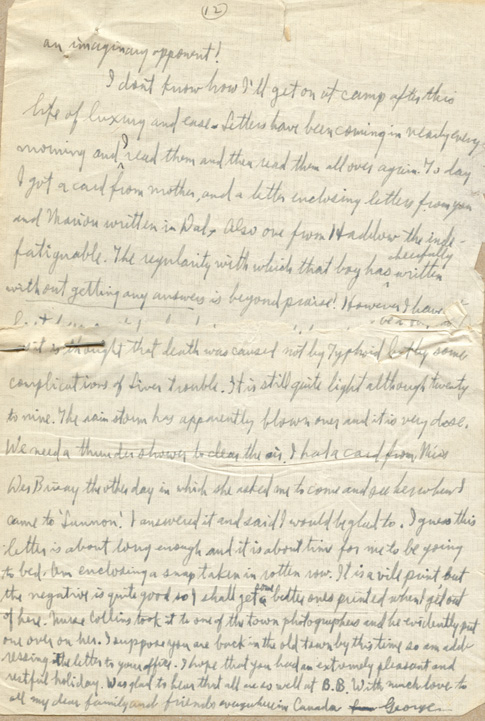 (12)
an imaginary opponent!
I don't know how I'll get on at camp after this
life of luxury and ease. Letters have been coming in nearly every
morning and I read them and then read them all over again. To day
I got a card from mother, and a letter enclosing letters from you
and Marion written in Dal. Also one from Haddow the inde-
fatiguable. The regularity with which that boy has cheerfully written
without getting any answers is beyond praise! However I have
it is thought that death was caused not by Typhoid but by some
complications of liver trouble. It is still quite light although twenty
to nine. The rain storm has apparently blown over and it is very close.
We need a thunder shower to clear the air. I had a card from Miss
Des Bisay the other day in which she asked me to come and see her when I
came to 'Lunnon'. I answered it and said I would be glad to. I guess this
letter is about long enough and it is about time for me to be going
to bed. Am enclosing a snap taken in rotten row. It is a vile print but
the negative is quite good so I shall get some better ones printed when I get out
of here. Nurse Collins took it to one of the town photographers and he evidently put
one over on her. I suppose you are back in the old town by this time so am add-
ressing the letter to your office. I hope that you had an extremely pleasant and
restful holiday. Was glad to hear that all are so well at B.B. With much love to
all my dear family and friends everywhere in Canada George